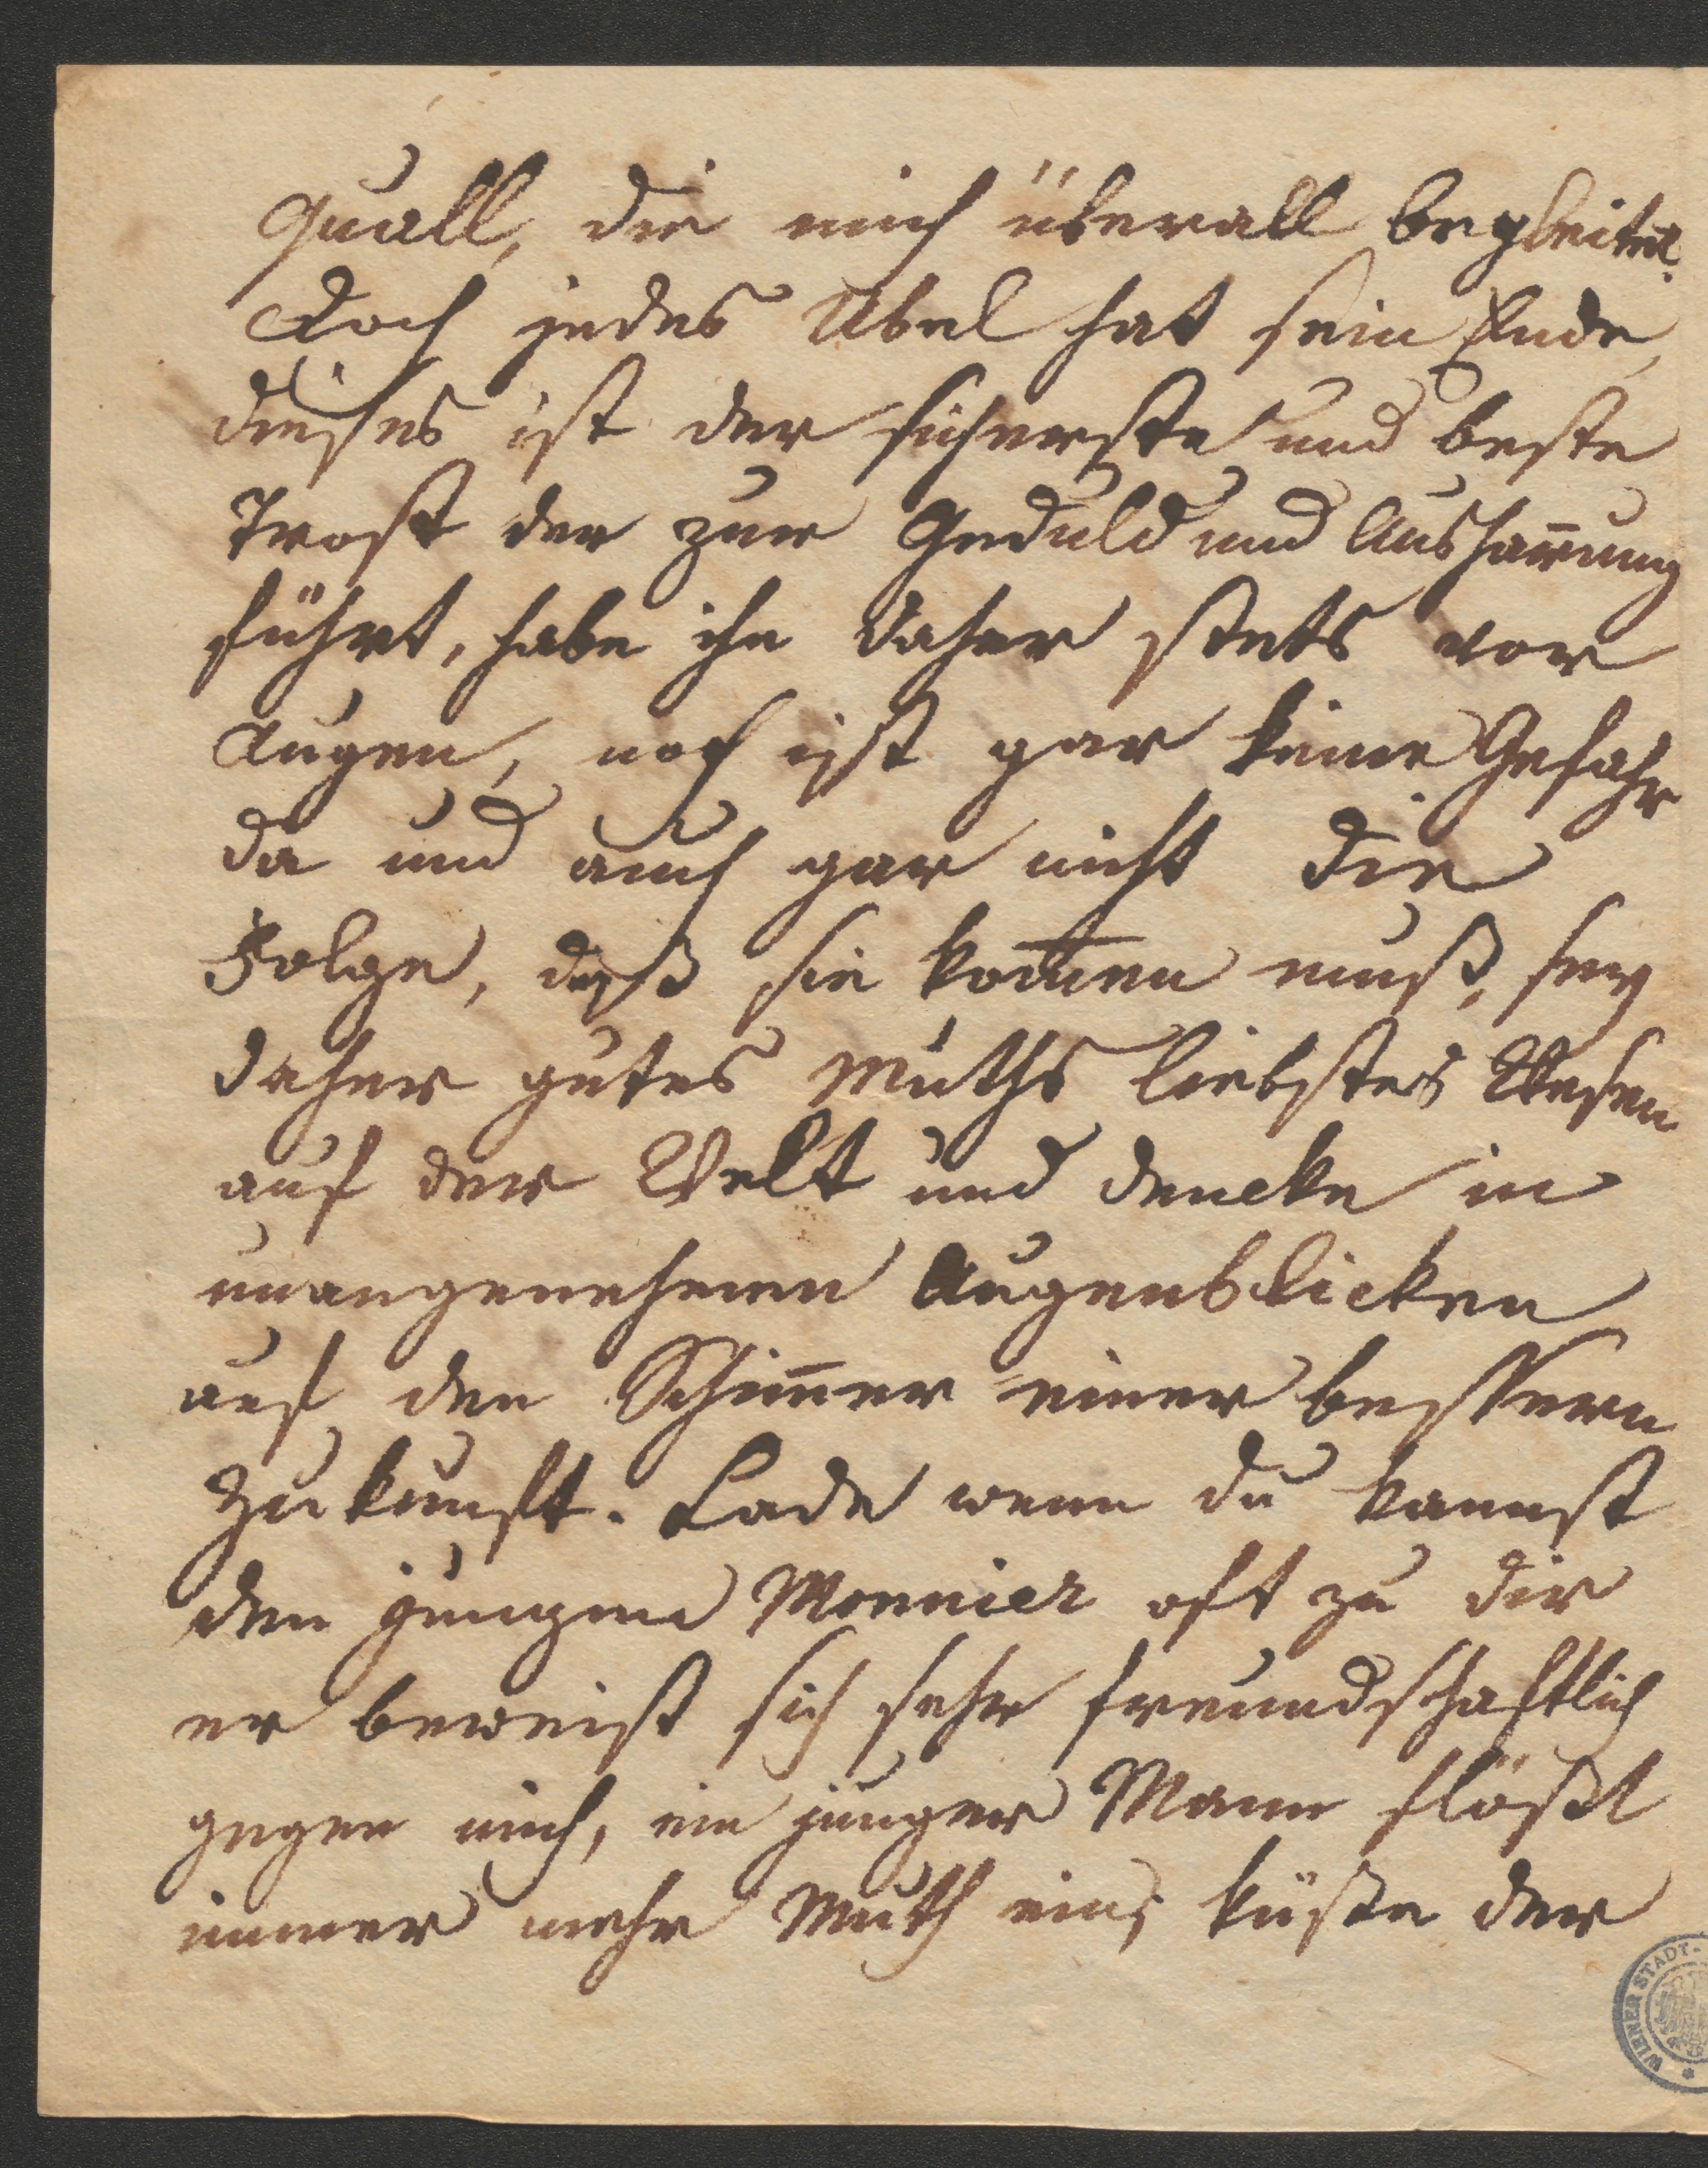 Quall, die mich überall begleitet.
Doch jedes Übel hat sein Ende,
dieses ist der sicherste und beste
Trost der zur Geduld und Ausharrung
führt, habe ihn daher stets vor
Augen, noch ist gar keine Gefahr
da und auch gar nicht die
Folge, daß sie kom̅en muß, sey
daher gutes Muths liebstes Wesen
auf der Welt und dencke in
unangenehmen Augenblicken
auf den Schim̅er einer bessern
Zukunft. Lade wenn du kannst
den jungen Monnier oft zu dir
er beweist sich sehr freundschaftlich
gegen mich, ein junger Mann flößt
immer mehr Muth ein; küße der
WIENER STADT-